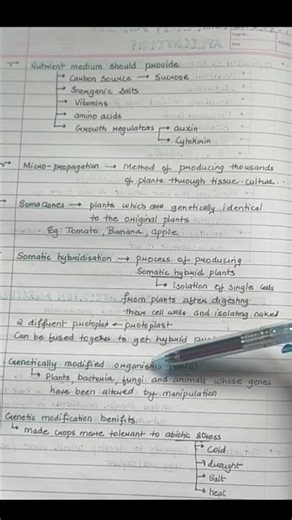 Nutrient medium should provide
Carbon source → Sucrose
Inorganic salts
Vitamins
amino acids
Growth regulators → auxin
Cytokinin
Micro-propagation → Method of producing thousands
of plants through tissue culture.
Somaclones → plants which are genetically identical
to the original plants
Eg: Tomato, Banana, apple
Somatic hybridisation → process of producing
Somatic hybrid plants
Isolation of single cells
from plants after digesting
their cell walls and isolating naked
2 diffrent protoplast ← protoplast
Can be fused together to get hybrid
Genetically modified organisms
Plants, bacteria, fungi and animals whose genes
have been altered by manipulation
Genetic modification benifits
made crops more tolerant to abiotic stress
Cold
drought
Salt
heat